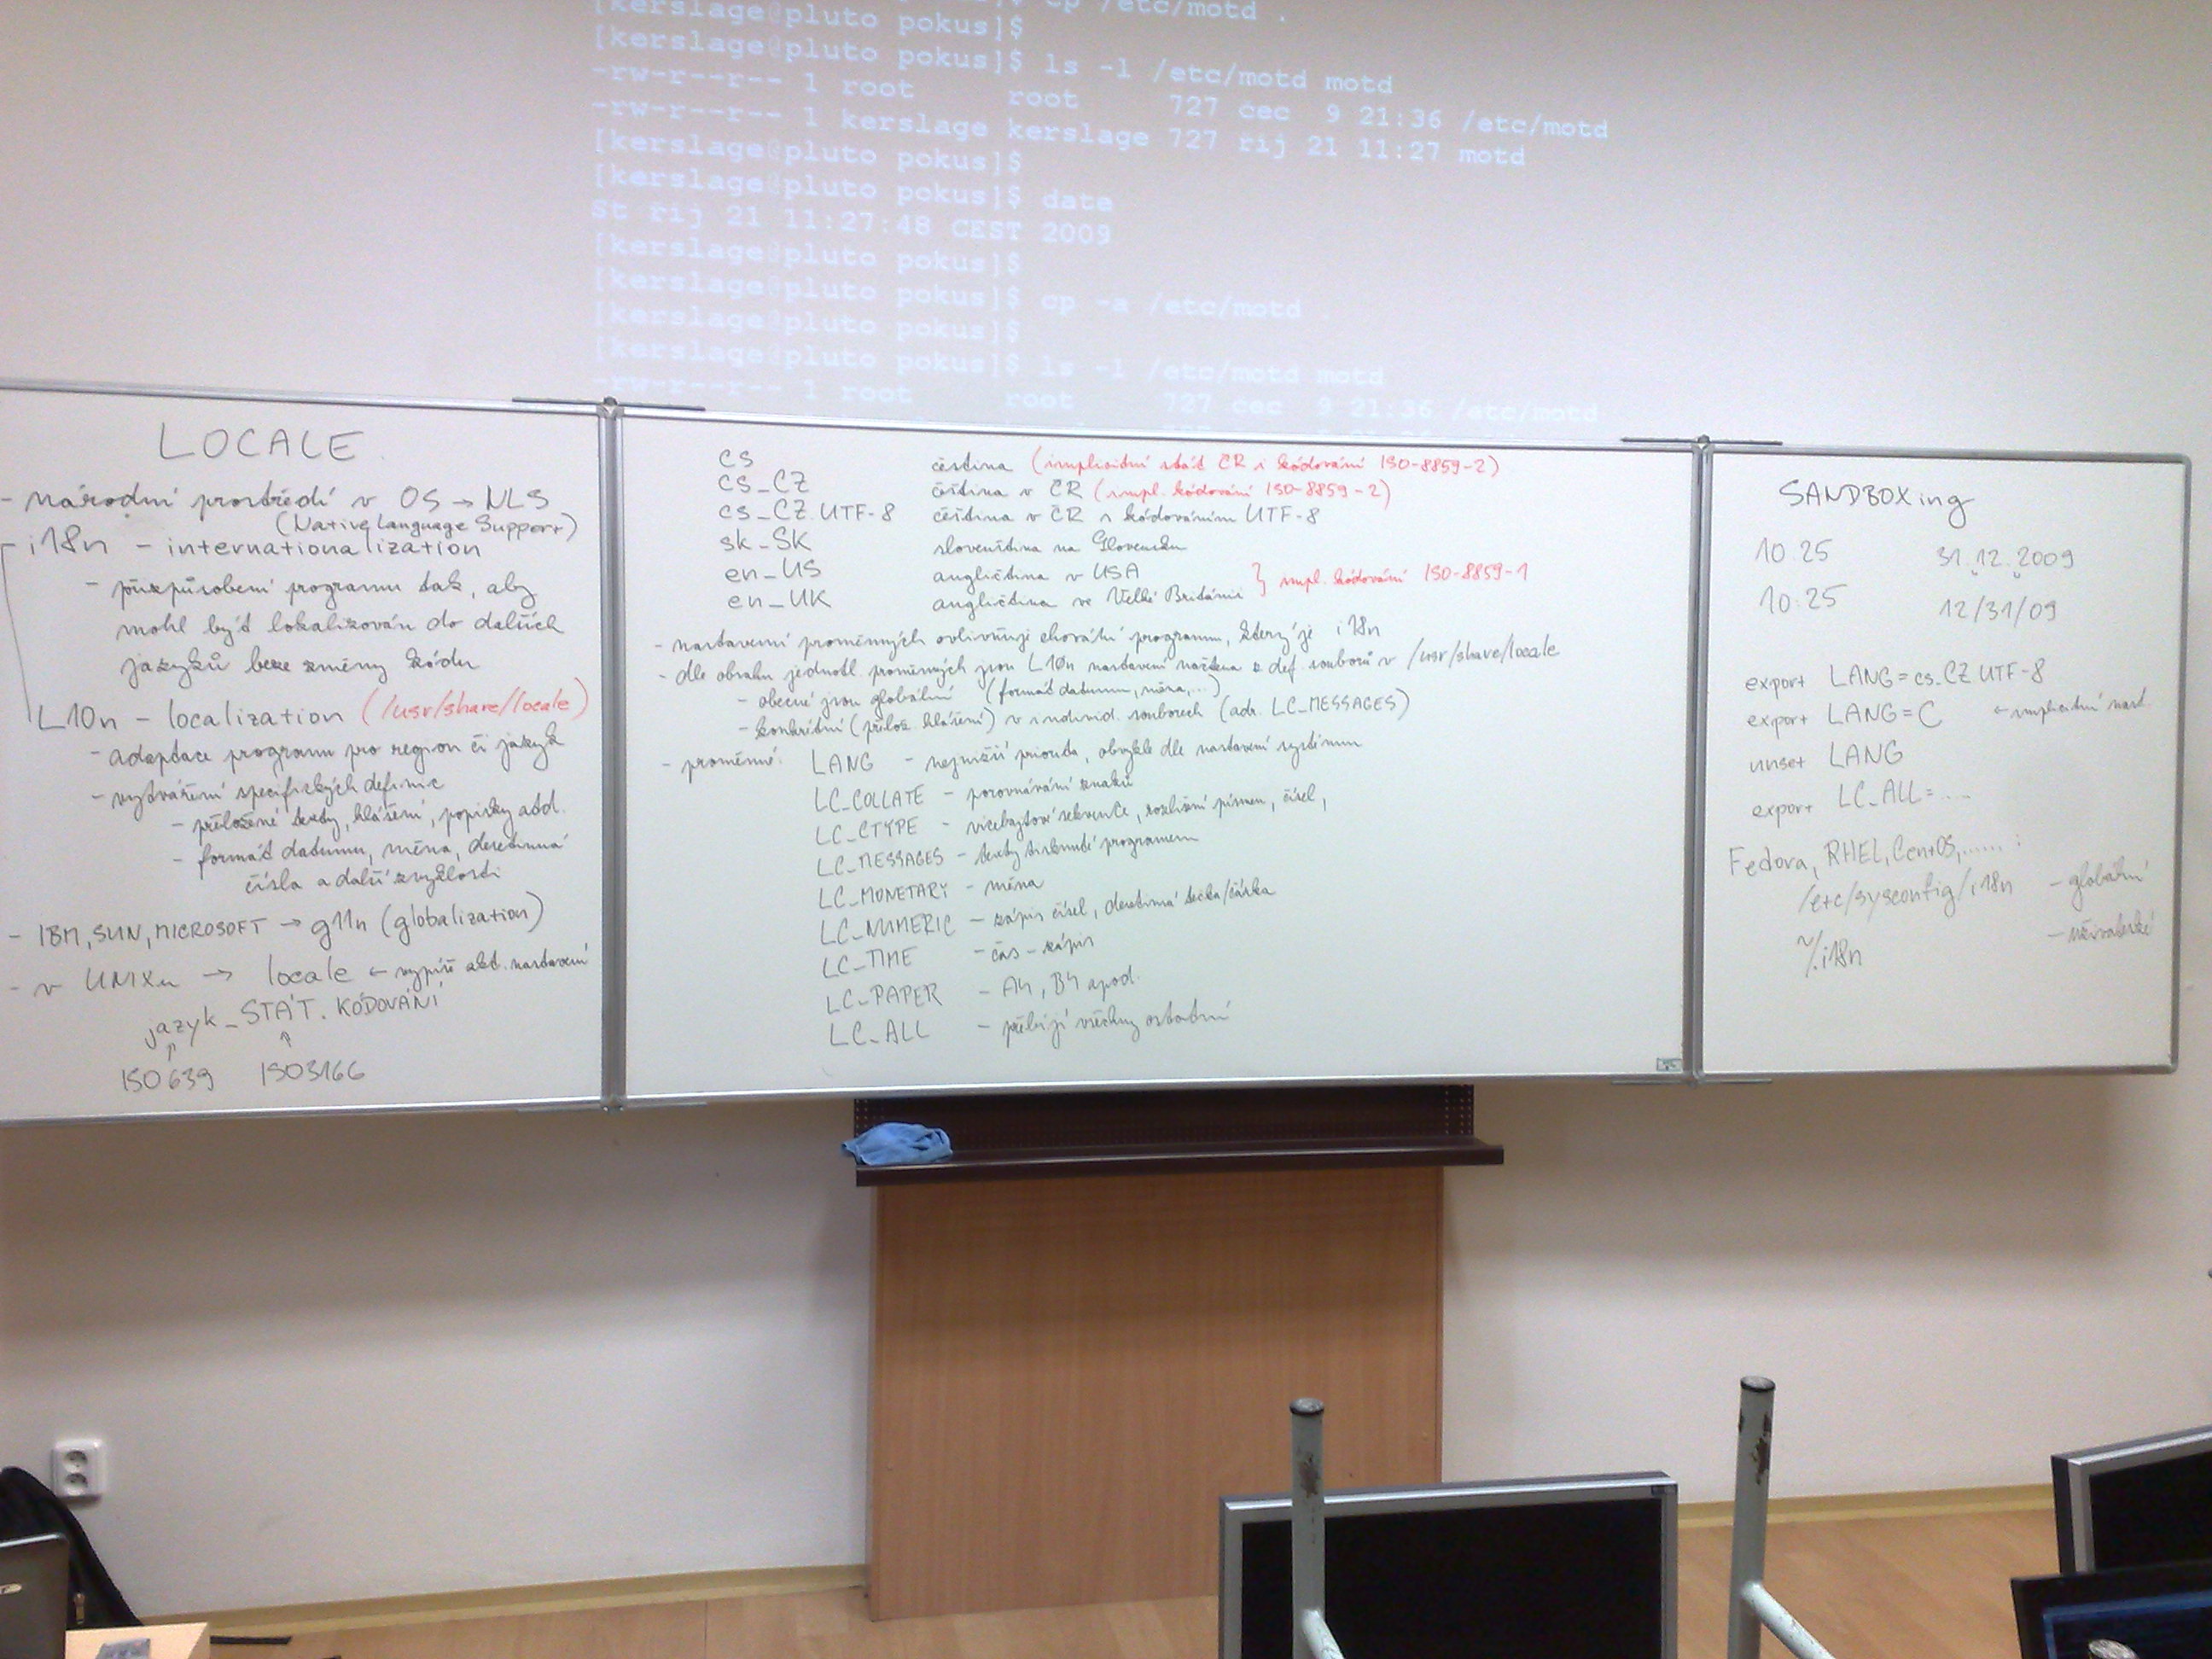 cp /etc/motd .
[kerslage@pluto pokus]$
[kerslage@pluto pokus]$ ls -l /etc/motd motd
-rw-r--r-- 1 root root 727 cec 9 21:36 /etc/motd
-rw-r--r-- 1 kerslage kerslage 727 rij 21 11:27 motd
[kerslage@pluto pokus]$
[kerslage@pluto pokus]$ date
St rij 21 11:27:48 CEST 2009
[kerslage@pluto pokus]$
[kerslage@pluto pokus]$ cp -a /etc/motd .
[kerslage@pluto pokus]$
[kerslage@pluto pokus]$ ls -l /etc/motd motd
-rw-r--r-- 1 root root 727 cec 9 21:36 /etc/motd
LOCALE
- národní prostředí v OS → NLS
(Native Language Support)
i18n - internationalization
- přizpůsobení programu tak, aby
mohl být lokalizován do dalších
jazyků beze změny kódu
L10n - localization (/usr/share/locale)
- adaptace programu pro region či jazyk
- vytváření specifických definic
- přeložené texty, hlášení, popisky atd.
- formát datumu, měna, desetinná
čísla a další zvyklosti
- IBM, SUN, MICROSOFT → g11n (globalization)
- v UNIXu → locale ← vypíše akt. nastavení
jazyk_STÁT.KÓDOVÁNÍ
ISO639 ISO3166
cs čeština (implicitní stát ČR i kódování ISO-8859-2)
cs_CZ čeština v ČR (impl. kódování ISO-8859-2)
cs_CZ.UTF-8 čeština v ČR s kódováním UTF-8
sk_SK slovenština na Slovensku
en_US angličtina v USA
en_UK angličtina ve Velké Británii } impl. kódování ISO-8859-1
- nastavení proměnných ovlivňuje chování programu, který je i18n
- dle obsahu jednotl. proměnných jsou L10n nastavení načtena z def. souborů v /usr/share/locale
- obecné jsou globální (formát datumu, měna,...)
- konkrétní (přelož. hlášení) v individ. souborech (adr. LC_MESSAGES)
- proměnné: LANG - nejnižší priorita, obvykle dle nastavení systému
LC_COLLATE - porovnávání znaků
LC_CTYPE - vícebajtové sekvence, rozlišení písmen, čísel,
LC_MESSAGES - texty tisknuté programem
LC_MONETARY - měna
LC_NUMERIC - zápis čísel, desetinná tečka/čárka
LC_TIME - čas - zápis
LC_PAPER - A4, B4 apod.
LC_ALL - přebíjí všechny ostatní
SANDBOXing
10.25 31.12.2009
10:25 12/31/09
export LANG=cs_CZ.UTF-8
export LANG=C ← implicitní nast.
unset LANG
export LC_ALL=....
Fedora, RHEL, CentOS,...... :
/etc/sysconfig/i18n - globální
~/.i18n - uživatelské